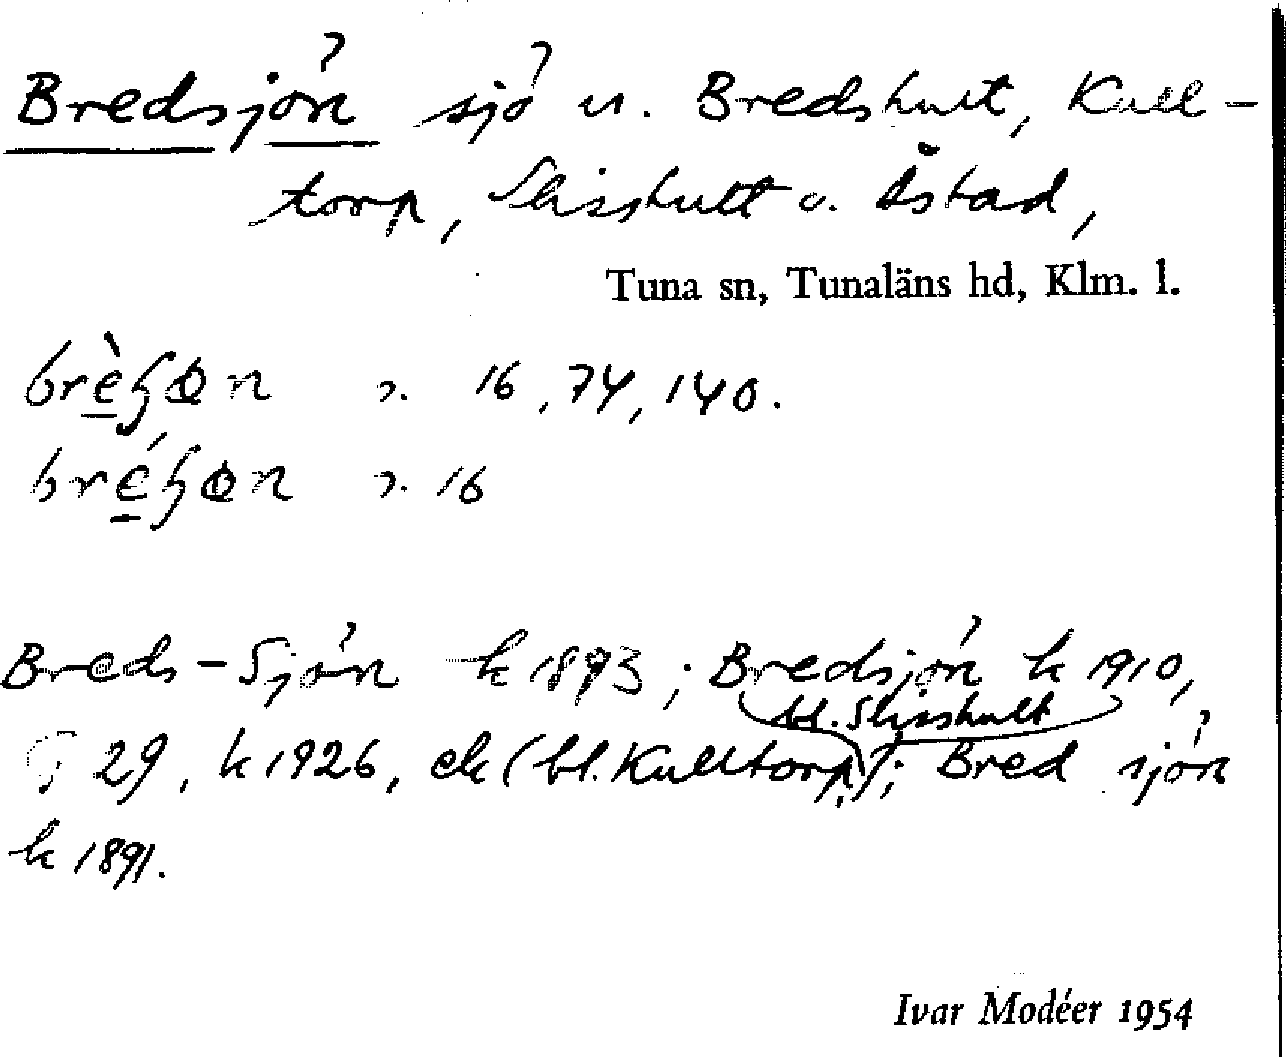 Bredsjön sjö u. Bredshult, Kull-
torp, Slisshult o. Åstad,
Tuna sn, Tunaläns hd, Klm. l.
16, 74, 140.
16
Breds-Sjön k 1893; Bredsjön k 1910,
bl. Slisshult
G 29, k 1926, ek (bl. Kulltorp); Bred sjön
k 1891.
Ivar Modéer 1954